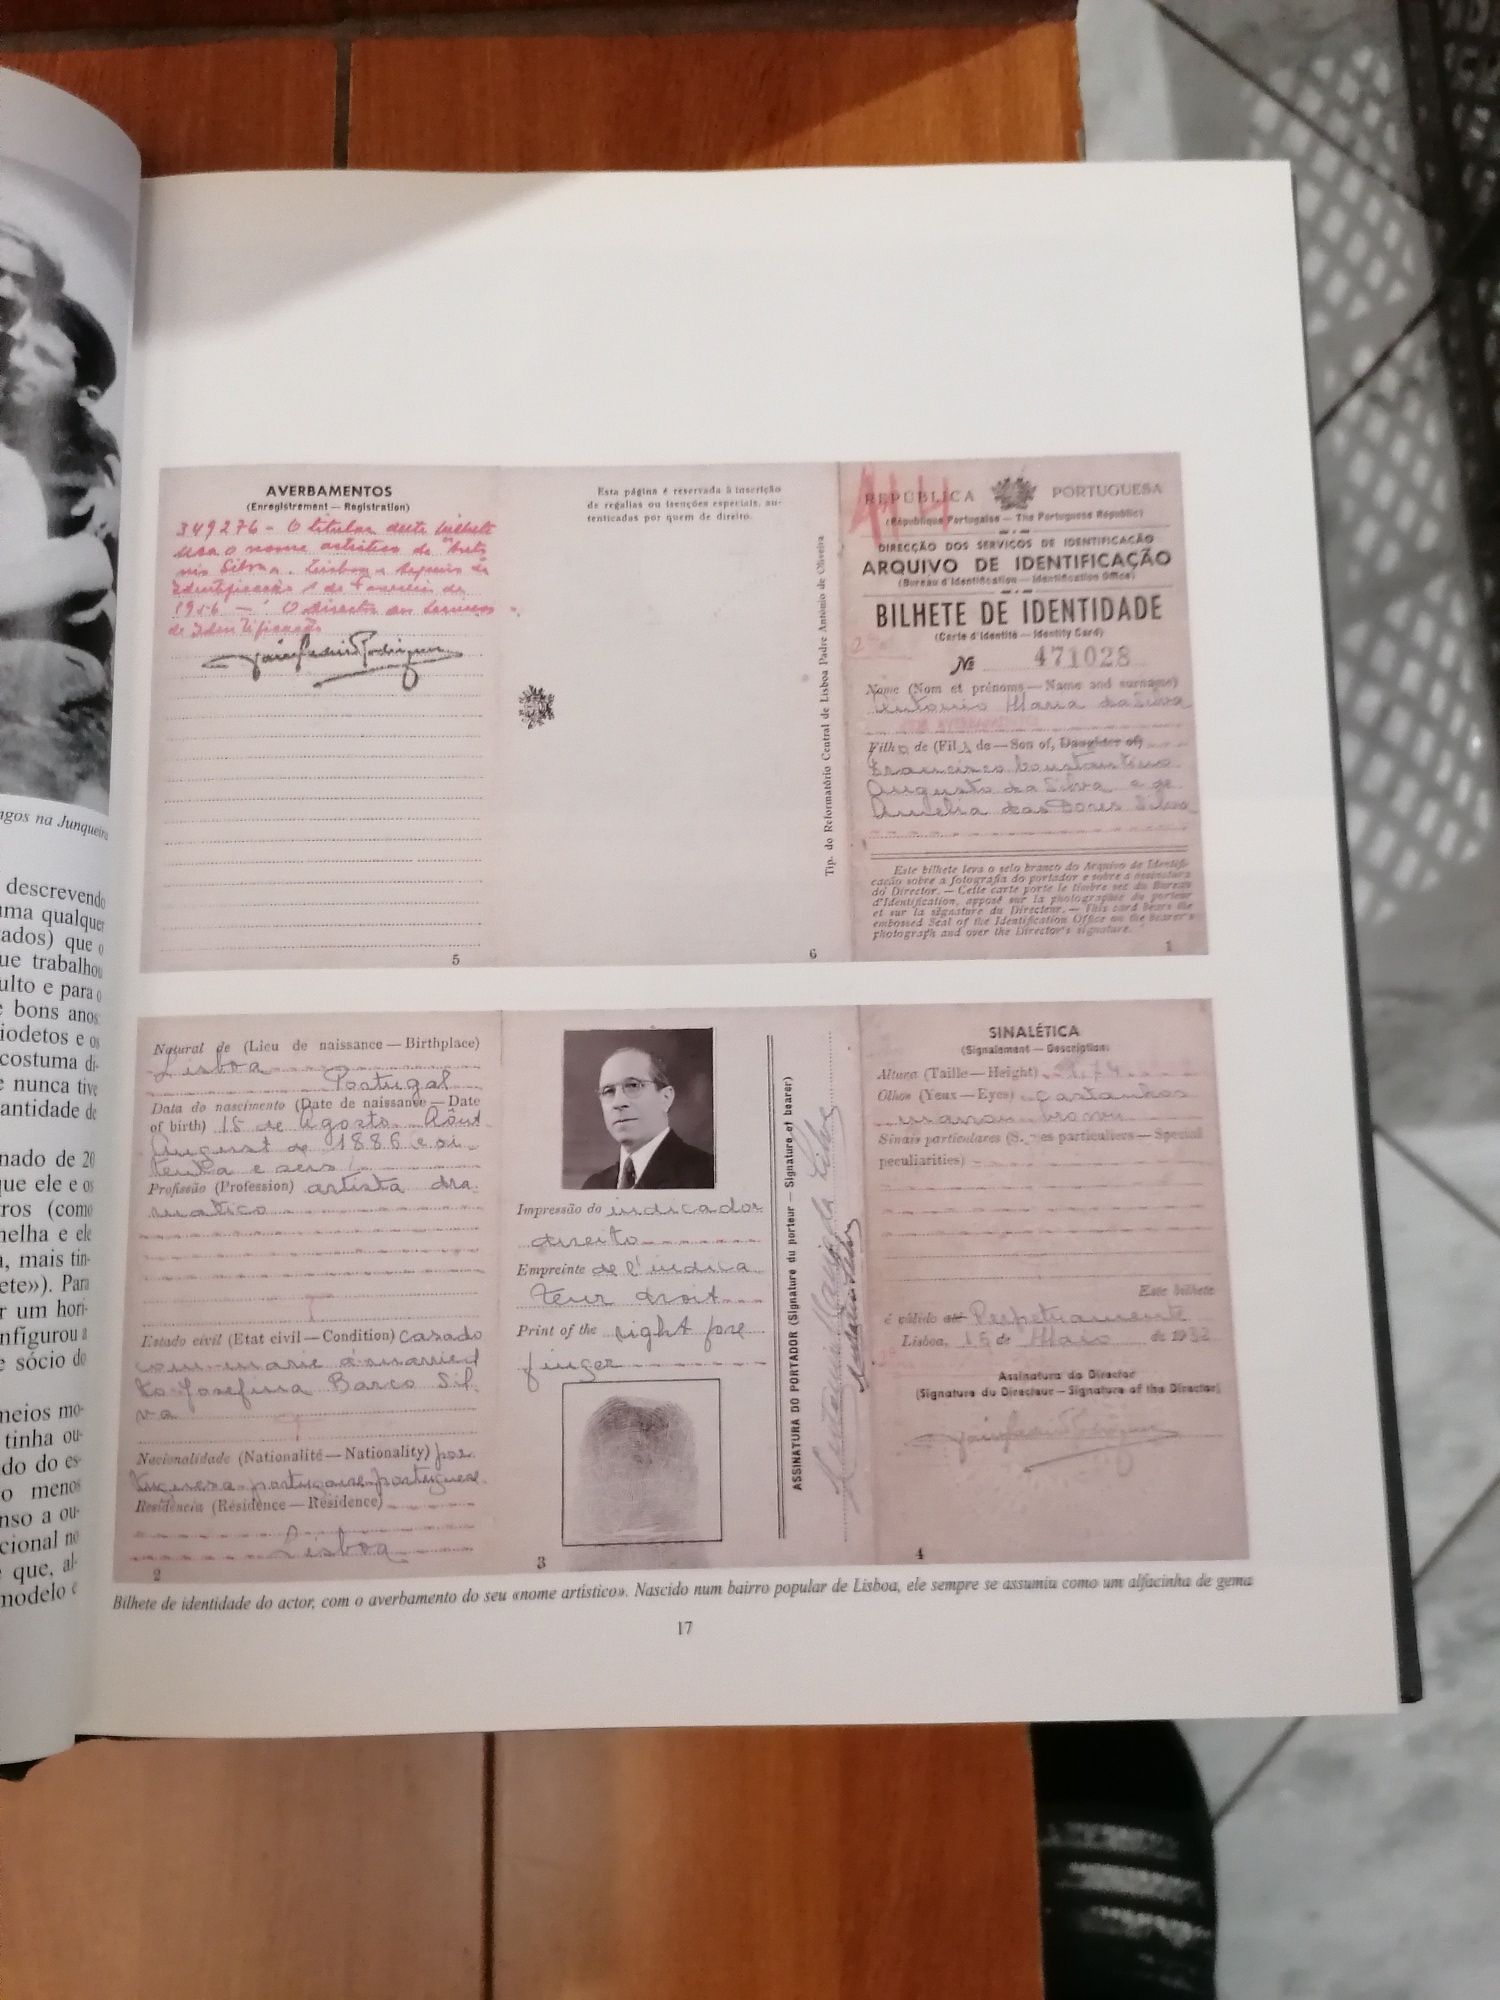 ngos na Junqueira
descrevendo
uma qualquer
ados) que o
ue trabalhou
ulto e para o
e bons anos
iodetos e os
costuma di-
e nunca tive
antidade de
nado de 20
que ele e os
ros (como
melha e ele
, mais tin-
ete»). Para
r um hori-
nfigurou a
e sócio do
neios mo-
tinha ou-
do do es-
o menos
nso a ou-
cional no
que, al-
modelo e
AVERBAMENTOS
(Enregistrement — Registration)
349276 - O titular deste bilhete
usa o nome artístico de Antó
nio Silva. Lisboa e Arquivo de
Identificação 1 de Fevereiro de
1956 — O Director dos Serviços
de Identificação
5
Esta página é reservada à inscrição
de regalias ou isenções especiais, au-
tenticadas por quem de direito.
6
Tip. do Reformatório Central de Lisboa Padre António de Oliveira
REPÚBLICA PORTUGUESA
(République Portugaise — The Portuguese Republic)
DIRECÇÃO DOS SERVIÇOS DE IDENTIFICAÇÃO
ARQUIVO DE IDENTIFICAÇÃO
(Bureau d'Identification — Identification Office)
BILHETE DE IDENTIDADE
(Carte d'Identité — Identity Card)
Nº 471028
Nome (Nom et prénoms — Name and surname)
António Maria da Silva
Filho de (Fils de — Son of, Daughter of)
Francisco Constantino
Augusto da Silva e de
Amelia das Dores Silva
Este bilhete leva o selo branco do Arquivo de Identifi-
cação sobre a fotografia do portador e sobre a assinatura
do Director. — Cette carte porte le timbre sec du Bureau
d'Identification, apposé sur la photographie du porteur
et sur la signature du Directeur. — This card bears the
embossed Seal of the Identification Office on the bearer's
photograph and over the Director's signature.
1
Natural de (Lieu de naissance — Birthplace)
Lisboa
Portugal
Data do nascimento (Date de naissance — Date
of birth) 15 de Agosto Août
August de 1886 e oi-
tenta e seis
Profissão (Profession) artista dra-
mático
Estado civil (Etat civil — Condition) casado
com marié à married
to Josefina Barco Sil-
va
Nacionalidade (Nationalité — Nationality) por-
tuguesa portugaise portuguese
Residência (Résidence — Residence)
Lisboa
2
Impressão do indicador
direito
Empreinte de l'indica
teur droit
Print of the right fore
finger
3
ASSINATURA DO PORTADOR (Signature du porteur — Signature of bearer)
António Maria da Silva
SINALÉTICA
(Signalement — Description)
Altura (Taille — Height)
Olhos (Yeux — Eyes) castanhos
marron brown
Sinais particulares (S. es particuliers — Special
peculiarities)
Este bilhete
é válido até Perpetuamente
Lisboa, 16 de Maio de 1932
Assinatura do Director
(Signature du Directeur — Signature of the Director)
4
Bilhete de identidade do actor, com o averbamento do seu «nome artístico». Nascido num bairro popular de Lisboa, ele sempre se assumiu como um alfacinha de gema
17